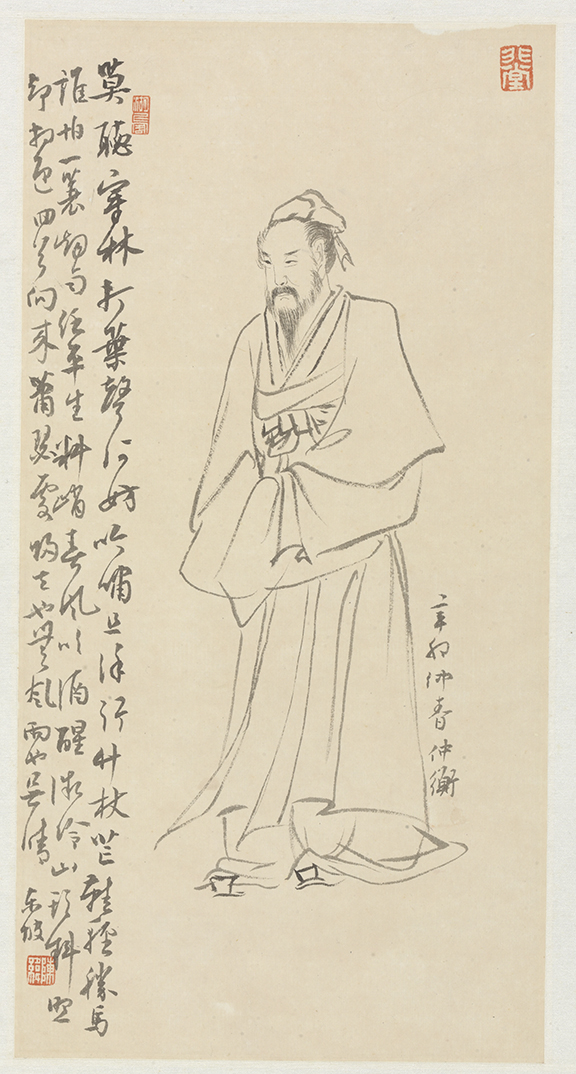 莫聽穿林打葉聲何妨吟嘯且徐行竹杖芒鞋輕勝馬
誰怕一蓑烟雨任平生料峭春風吹酒醒微冷山頭斜照
却相迎回首向来蕭瑟處歸去也無風雨也無晴
东坡
辛卯仲春仲衡